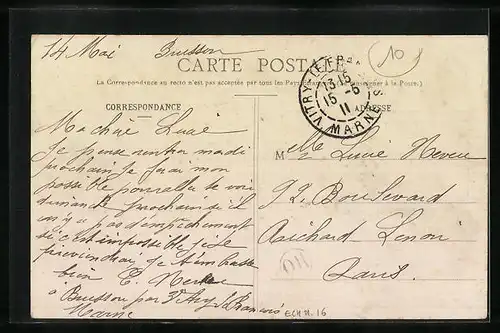 14 Mai Buisson
CARTE POSTALE
10
La Correspondance au recto n'est pas acceptée par tous les
CORRESPONDANCE
ADRESSE
VITRY-LE-FR
13-15
15-5
11
MARNE
Ma chère Lucie
Je pense rentrer mardi
prochain je ferai mon
possible pour aller te voir
dimanche prochain s'il
n'y a pas d'empêchement
si c'est impossible je te
préviendrai. Je t'embrasse
bien E.
à Buisson par Vitry le François
Marne
Melle Lucie
92 Boulevard
Richard Lenoir
Paris.